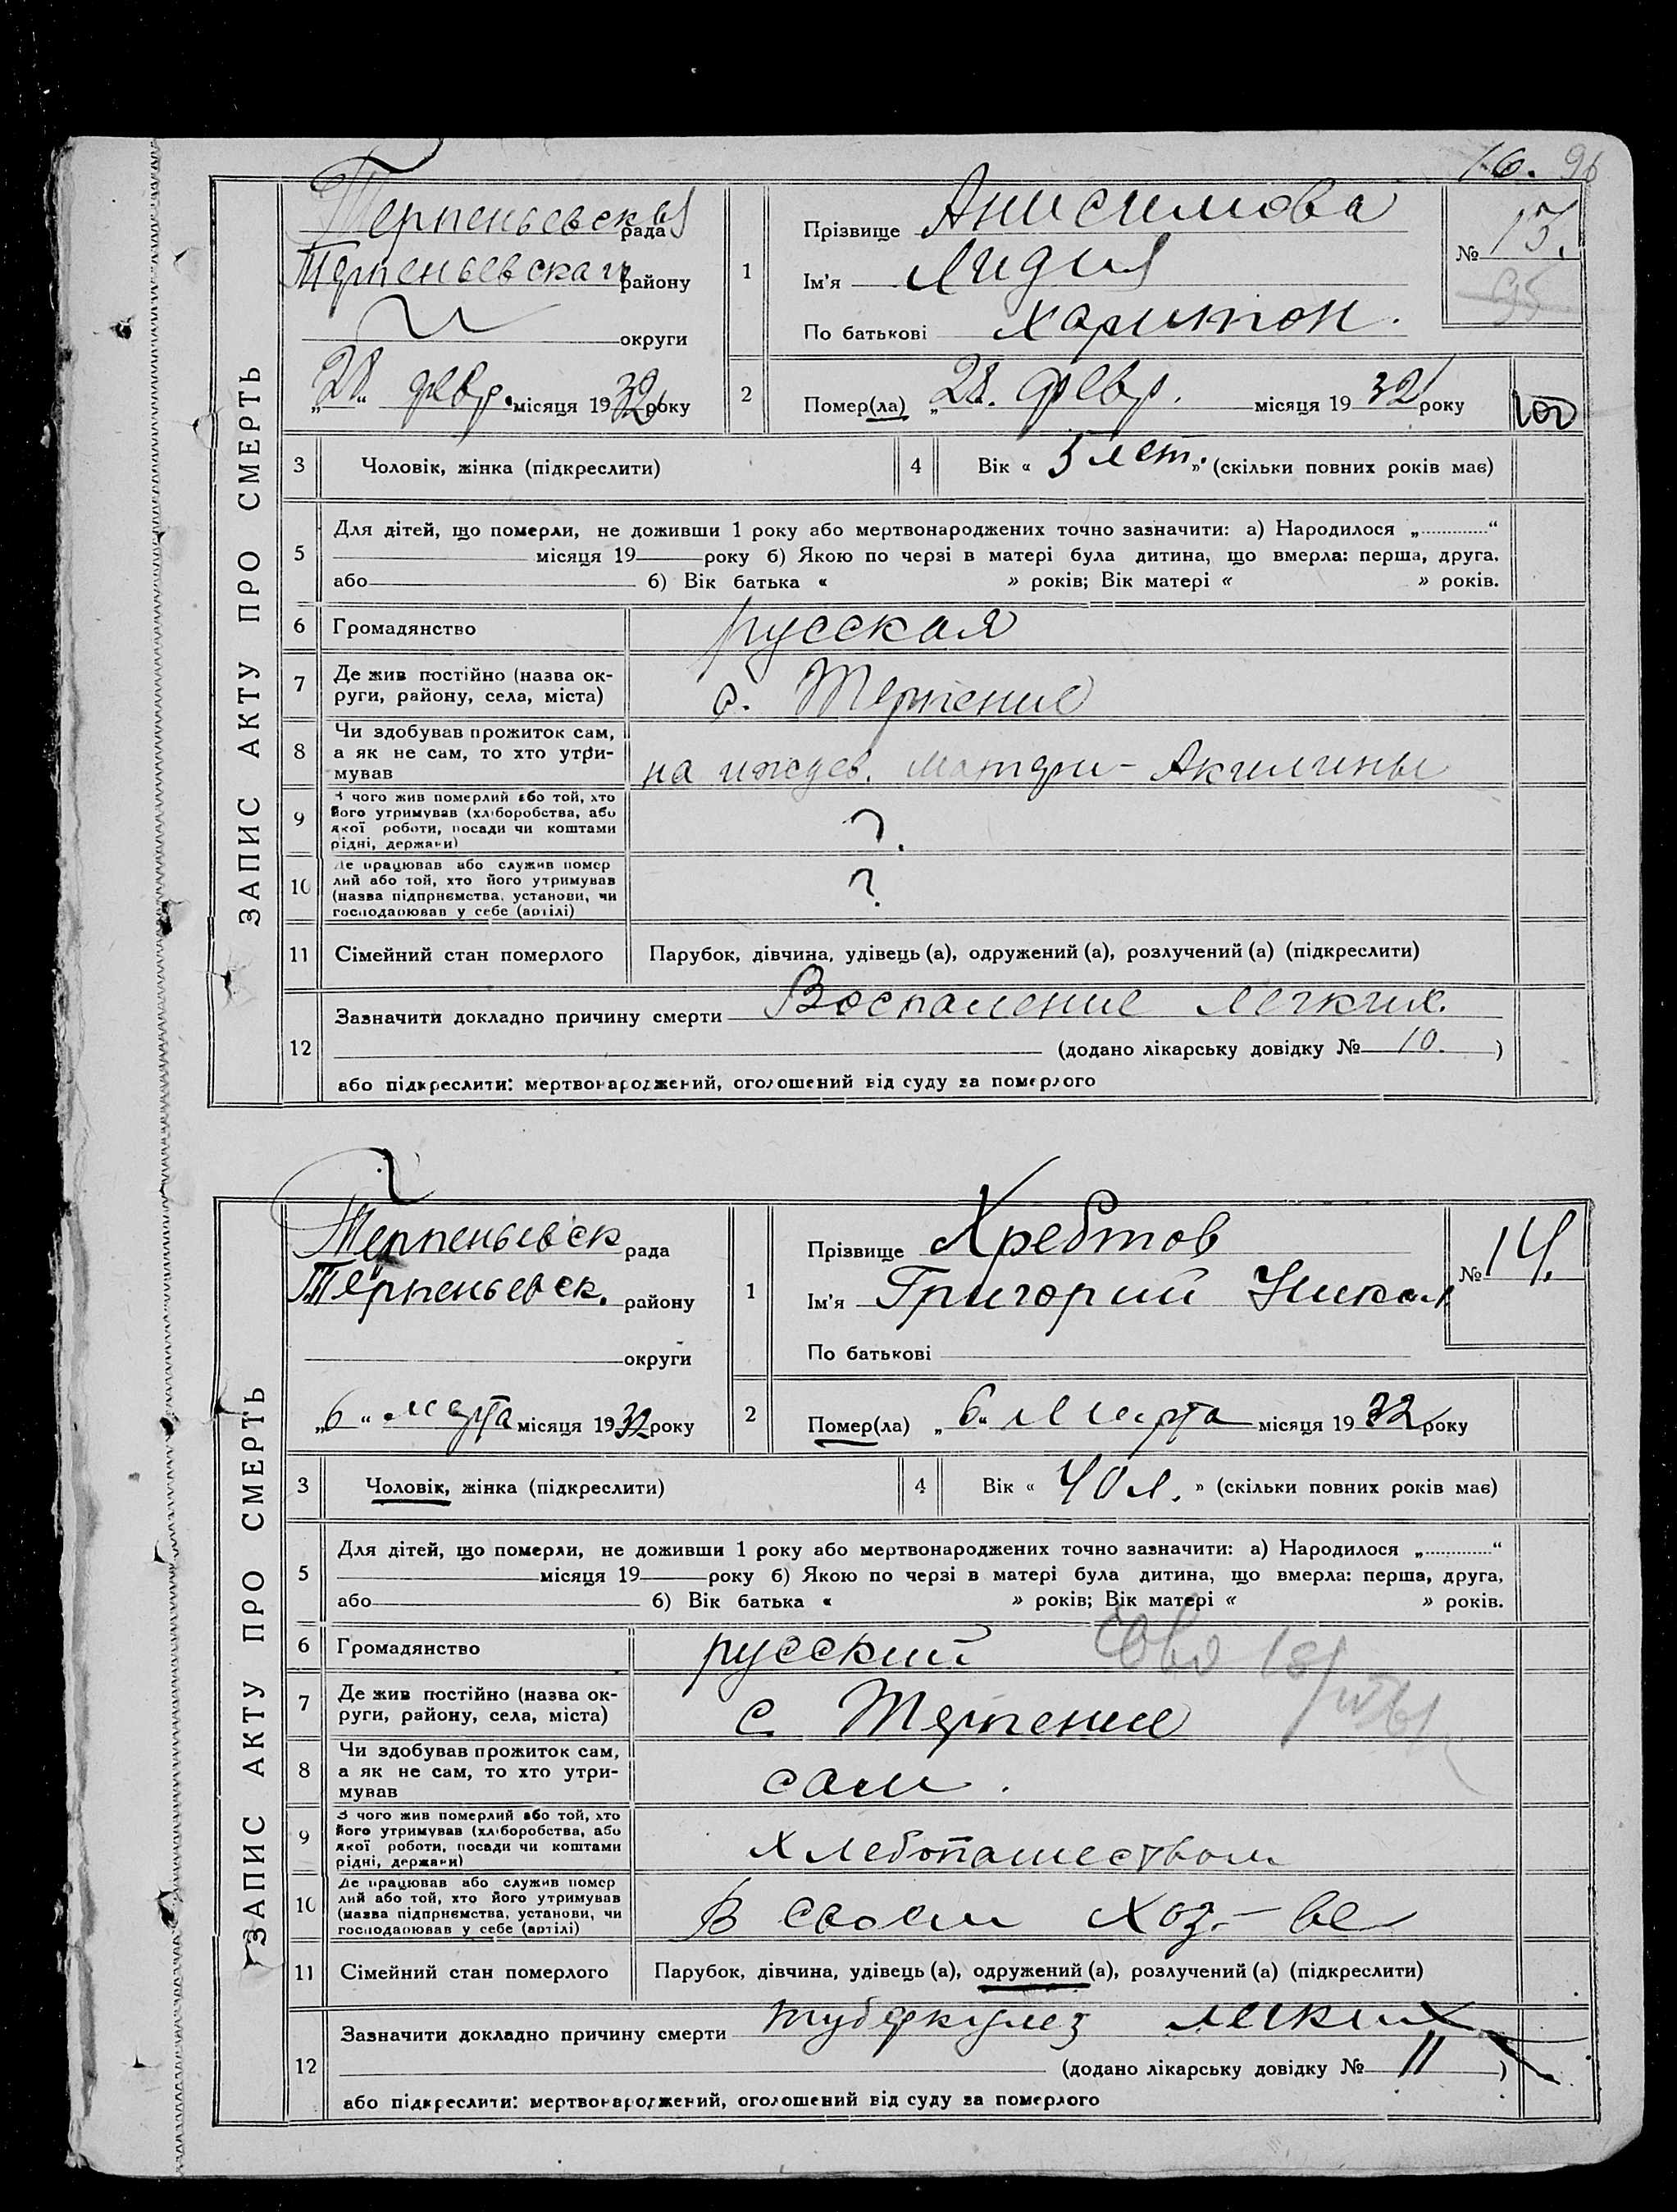 16. 96
ЗАПИС АКТУ ПРО СМЕРТЬ
Терпеньевская рада
Терпеньевскаго району
округи
„28“ февр. місяця 1932 року
1
Прізвище Анисимова
Ім'я Лидия
По батькові Харитон.
№ 13.
95
2
Помер(ла) „28. февр. місяця 1932 року
3 Чоловік, жінка (підкреслити)
4 Вік « 5 лет. » (скільки повних років має)
5
Для дітей, що померли, не доживши 1 року або мертвонароджених точно зазначити: а) Народилося „............“
місяця 19 року б) Якою по черзі в матері була дитина, що вмерла: перша, друга,
або б) Вік батька « » років; Вік матері « » років.
6 Громадянство русская
7 Де жив постійно (назва ок-
руги, району, села, міста)
с. Терпение
8 Чи здобував прожиток сам,
а як не сам, то хто утри-
мував
на иждев. матери - Акилины
9 З чого жив померлий або той, хто
його утримував (хліборобства, або
якої роботи, посади чи коштами
рідні, держави)
?
10 Де працював або служив помер
лий або той, хто його утримував
(назва підприємства, установи, чи
господарював у себе (артілі)
?
11 Сімейний стан померлого Парубок, дівчина, удівець (а), одружений (а), розлучений (а) (підкреслити)
12
Зазначити докладно причину смерти Воспаление легких.
(додано лікарську довідку № 10. )
або підкреслити: мертвонароджений, оголошений від суду за померлого
ЗАПИС АКТУ ПРО СМЕРТЬ
Терпеньевск рада
Терпеньевск. району
округи
„6“ марта місяця 1932 року
1
Прізвище Хребтов
Ім'я Григорий Никол.
По батькові
№ 14.
2
Помер(ла) „6“ Марта місяця 1932 року
3 Чоловік, жінка (підкреслити)
4 Вік « 40 л. » (скільки повних років має)
5
Для дітей, що померли, не доживши 1 року або мертвонароджених точно зазначити: а) Народилося „............“
місяця 19 року б) Якою по черзі в матері була дитина, що вмерла: перша, друга,
або б) Вік батька « » років; Вік матері « » років.
6 Громадянство русский
7 Де жив постійно (назва ок-
руги, району, села, міста)
с Терпение
8 Чи здобував прожиток сам,
а як не сам, то хто утри-
мував
сам.
9 З чого жив померлий або той, хто
його утримував (хліборобства, або
якої роботи, посади чи коштами
рідні, держави)
Хлебопашеством
10 Де працював або служив помер
лий або той, хто його утримував
(назва підприємства, установи, чи
господарював у себе (артілі)
В своем хоз-ве
11 Сімейний стан померлого Парубок, дівчина, удівець (а), одружений (а), розлучений (а) (підкреслити)
12
Зазначити докладно причину смерти туберкулез легких
(додано лікарську довідку № 11 )
або підкреслити: мертвонароджений, оголошений від суду за померлого